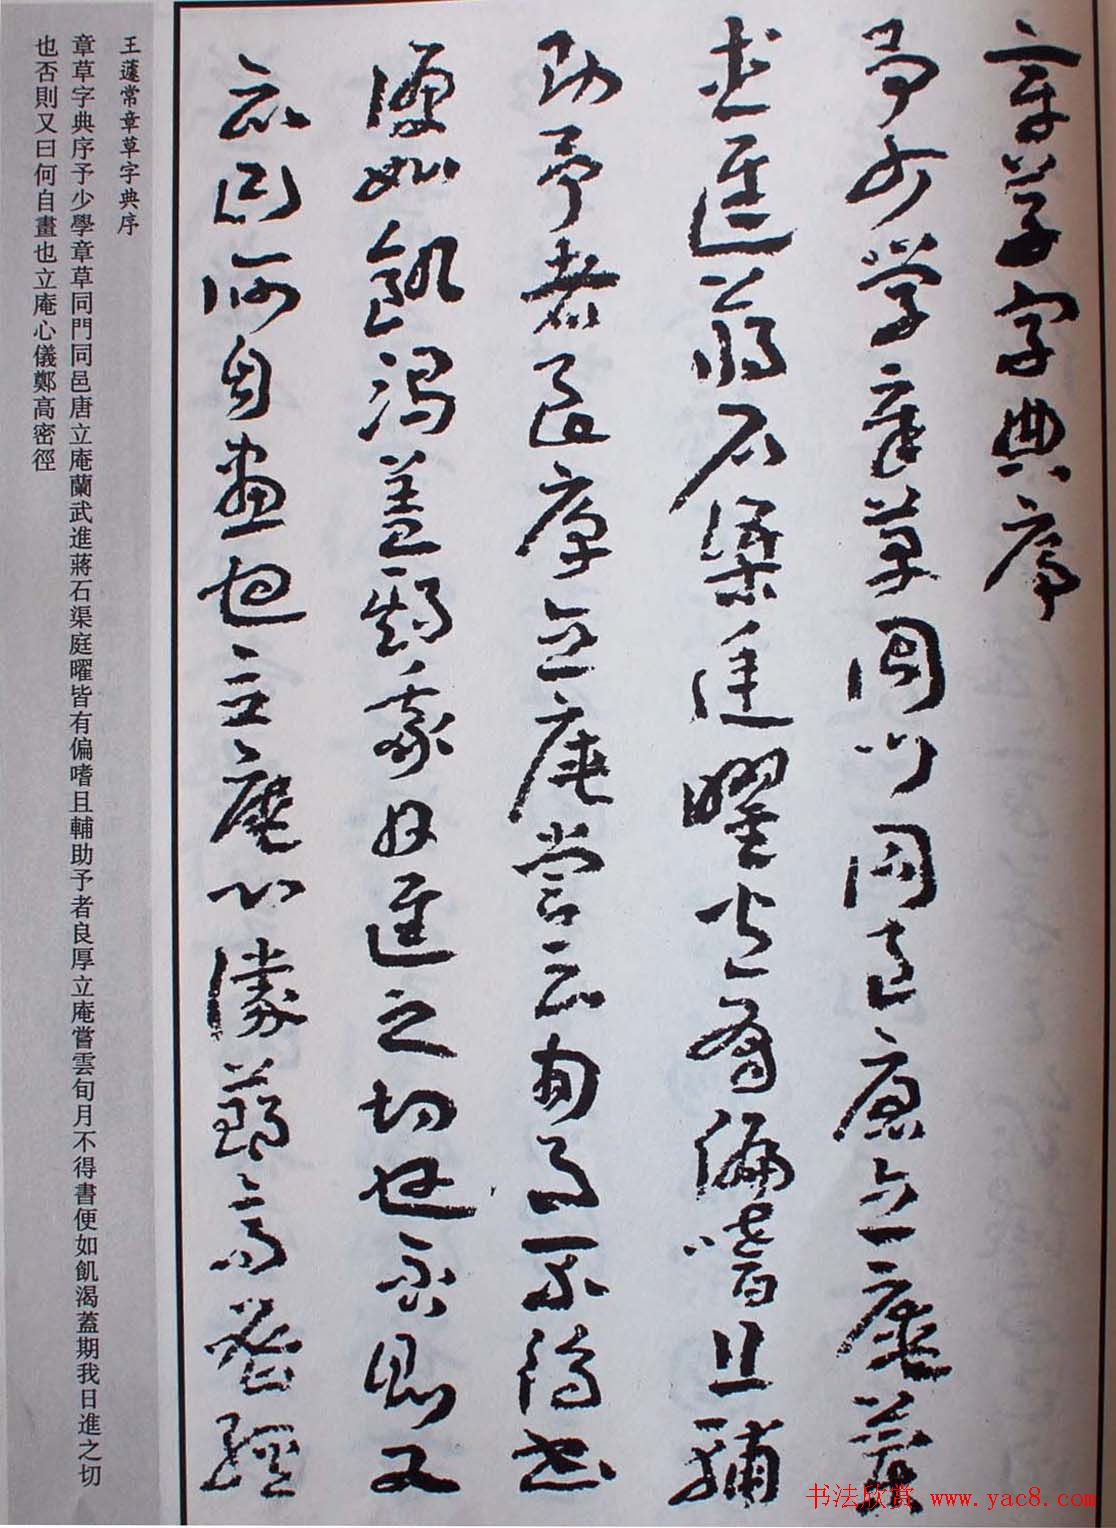 章草字典序
予少學章草同門同邑唐立庵蘭
武進蔣石渠庭曜皆有偏嗜且輔
助予者良厚立庵嘗云旬月不得書
便如飢渴蓋期我日進之切也否則又
曰何自畫也立庵心儀鄭高密經
王蘧常章草字典序
章草字典序予少學章草同門同邑唐立庵蘭武進蔣石渠庭曜皆有偏嗜且輔助予者良厚立庵嘗雲旬月不得書便如飢渴蓋期我日進之切
也否則又曰何自畫也立庵心儀鄭高密徑
书法欣赏 www.yac8.com